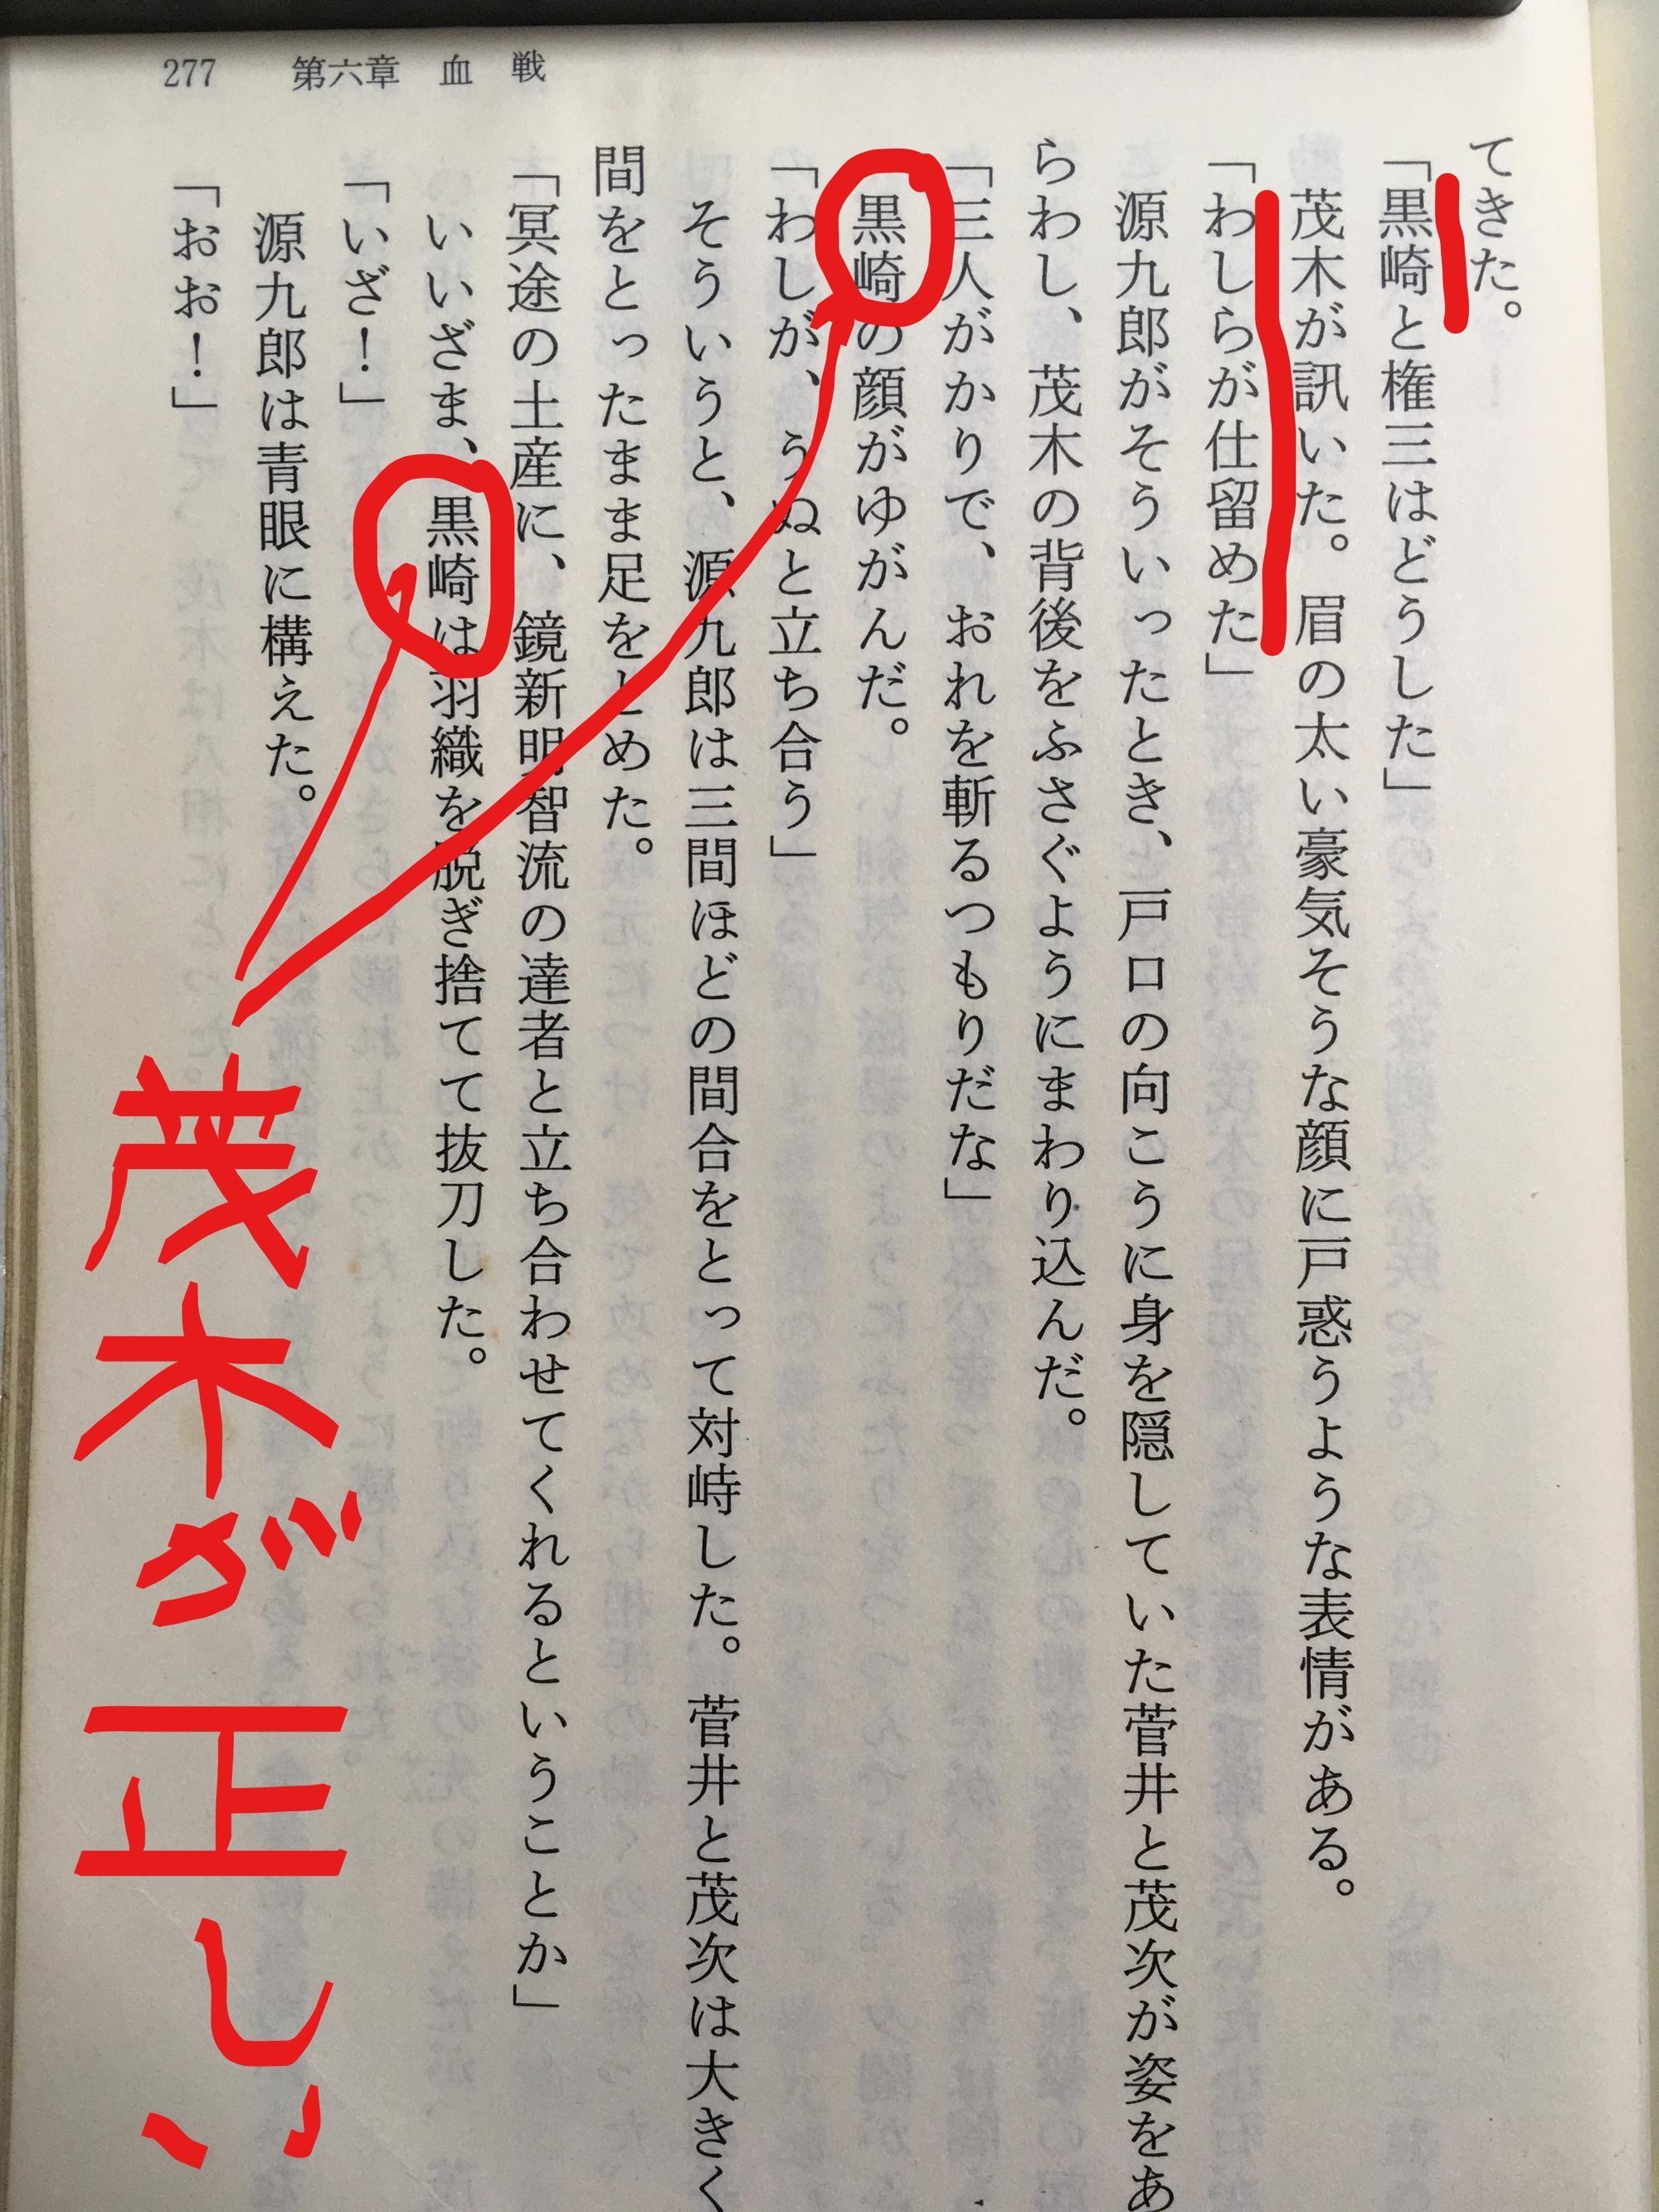 277 第六章 血 戦
てきた。
「黒崎と権三はどうした」
茂木が訊いた。眉の太い豪気そうな顔に戸惑うような表情がある。
「わしらが仕留めた」
源九郎がそういったとき、戸口の向こうに身を隠していた菅井と茂次が姿をあ
らわし、茂木の背後をふさぐようにまわり込んだ。
「三人がかりで、おれを斬るつもりだな」
黒崎の顔がゆがんだ。
「わしが、うぬと立ち合う」
そういうと、源九郎は三間ほどの間合をとって対峙した。菅井と茂次は大きく
間をとったまま足をとめた。
「冥途の土産に、鏡新明智流の達者と立ち合わせてくれるということか」
いいざま、黒崎は羽織を脱ぎ捨てて抜刀した。
「いざ！」
源九郎は青眼に構えた。
「おお！」
茂木が正しい